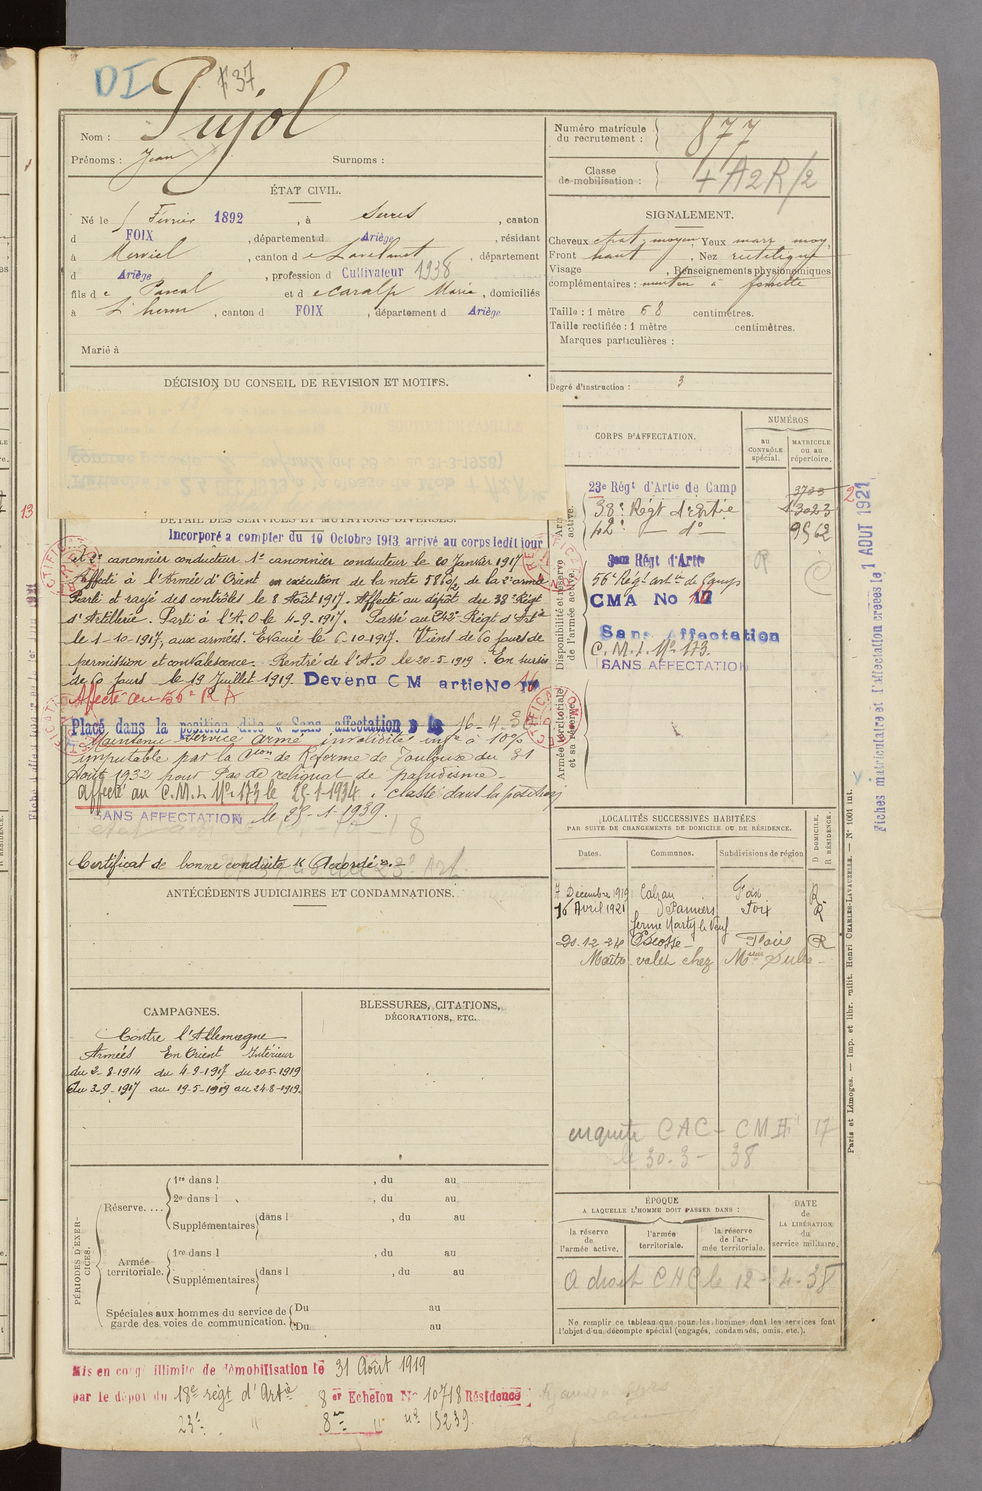 DI
37
Nom : Pujol
Prénoms : Jean Surnoms :
ÉTAT CIVIL.
Né le 5 Février 1892, à Serres, canton
d FOIX, département d Ariège, résidant
à Merviel, canton de Lavelanet, département
d Ariège, profession d Cultivateur 1938
fils de Pascal et de Caralp Marie, domiciliés
à L'herm, canton d FOIX, département d Ariège
Marié à
DÉCISION DU CONSEIL DE REVISION ET MOTIFS.
DÉTAIL DES SERVICES ET MUTATIONS DIVERSES.
Incorporé à compter du 10 Octobre 1913, arrivé au corps ledit jour
et 2e canonnier conducteur. 1er canonnier conducteur le 20 Janvier 1917
Affecté à l'Armée d'Orient en exécution de la note de la 2e armée
Parti et rayé des contrôles le 8 Août 1917. Affecté au dépôt du 38e Régt
d'Artillerie. Parti à l'A.O le 4-9-1917. Passé au 242e Régt d'Artie
le 1-10-1917, aux armées. Evacué le 6-10-1917. Vient de 60 jours de
permission et convalescence. Rentré de l'A.O le 20-5-1919. En sursis
de 60 jours le 19 Juillet 1919. Devenu CM artie No 16
Affecté au 56e R A
Placé dans la position dite « Sans affectation » le 16-4-30
Maintenu service armé invalidité infre à 10%
imputable par la Con de Réforme de Toulouse du 31
Août 1932 pour Pas de reliquat de paludisme -
Affecté au C.M.I. No 173 le 25-1-1934. classé dans la position
SANS AFFECTATION le 25-1-1939.
Certificat de bonne conduite "Accordé"
ANTÉCÉDENTS JUDICIAIRES ET CONDAMNATIONS.
CAMPAGNES.
Contre l'Allemagne
Armées En Orient Intérieur
du 2-8-1914 du 4-9-1917 du 20-5-1919
au 3-9-1917 au 19-5-1919 au 24-8-1919.
BLESSURES, CITATIONS,
DÉCORATIONS, ETC.
PÉRIODES D'EXERCICES.
Réserve....
1re dans l , du au
2e dans l , du au
Supplémentaires dans l , du au
au
Armée territoriale.
1re dans l , du au
Supplémentaires dans l , du au
au
Spéciales aux hommes du service de garde des voies de communication.
Du au
Du au
Mis en congé illimité de démobilisation le 31 Août 1919
par le dépôt du 18e régt d'Artie 8 er Echelon No 10718 Résidence
23e " 8me " no 15239.
Numéro matricule
du recrutement : 877
Classe
de mobilisation : + A2R/2
SIGNALEMENT.
Cheveux chat. moyen Yeux marr. moy.
Front haut, Nez rectiligne
Visage , Renseignements physionomiques
complémentaires : menton à fossette
Taille : 1 mètre 68 centimètres.
Taille rectifiée : 1 mètre centimètres.
Marques particulières :
Degré d'instruction : 3
CORPS D'AFFECTATION.
NUMÉROS
au
CONTRÔLE
spécial.
MATRICULE
ou au
répertoire.
Armée active.
23e Régt d'Artie de Camp 3733
38e Régt d'Artie 3023
42e — do — 9562
Disponibilité et réserve
de l'armée active.
Régt d'Artie
56e Régt artie de Camps
CMA No 17
Sans Affectation
C.M.I. No 173.
SANS AFFECTATION
Armée territoriale
et sa réserve.
LOCALITÉS SUCCESSIVES HABITÉES
PAR SUITE DE CHANGEMENTS DE DOMICILE OU DE RÉSIDENCE.
Dates. Communes. Subdivisions de région
D DOMICILE.
R RÉSIDENCE.
7 Décembre 1919 Calzan Foix R
16 Avril 1921 Pamiers Foix R
ferme Marty le Neuf
Escosse — Foix R
Maître valet chez
enquete CAC - CM 17
le 30-3-38
ÉPOQUE
A LAQUELLE L'HOMME DOIT PASSER DANS :
la réserve
de
l'armée active.
l'armée
territoriale.
la réserve
de l'armée territoriale.
DATE
de
LA LIBÉRATION
du
service militaire.
A droit CAC le 12-4-38
Ne remplir ce tableau que pour les hommes dont les services font
l'objet d'un décompte spécial (engagés, condamnés, omis, etc.).
Fiches matriculaire et d'affectation créées le 1 AOUT 1921
Paris et Limoges. — Imp. et libr. milit. Henri CHARLES-LAVAUZELLE. — No 1001 int.
13